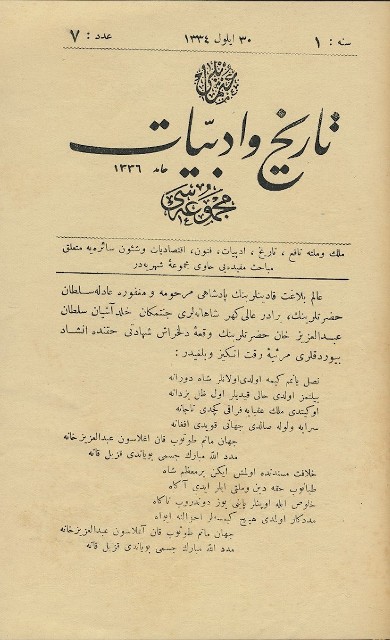 سنه : ١
٣٠ ايلول ١٣٣٤
عدد : ٧
تاريخ و ادبيات
١٣٣٦
مجموعه سى
ملك وملته نافع ، تاريخ ، ادبيات ، فنون ، اقتصاديات وشئون سائره يه متعلق
مباحث مفيده يى حاوى مجموعۀ شهريه در
عالم بلاغت قادينلرينك پادشاهى مرحومه و مغفوره عادله سلطان
حضرتلرينك ، برادر عالى كهر شاهانه لرى جنتمكان خلد آشيان سلطان
عبدالعزيز خان حضرتلرينك وقعۀ دلخراش شهادتى حقنده انشاد
بيوردقلرى مرثيۀ رقت انكيز وبليغدر :
نصل يانم كيمه اولدى اولانلر شاه دورانه
بيلنمز اولدى حالى قيديلر اول ظل يزدانه
ملك عقبايه فراقى كچدى تا جانه
سرايه ولوله صالدى جهانى قويدى افغانه
جهان ماتم طوتوب قان اغلاسون عبدالعزيز خانه
مدد الله مبارك جسمى بوياندى قزيل قانه
خلافت مسندنده اولمش ايكن بر معظم شاه
طيانوب حقه دين وملتى ايلر ايدى آكاه
خلوص ايله اوينلر يابنى يوز دوندروب ناكاه
مددكار اولدى هيچ كيمسه لر احوالنه ايواه
جهان ماتم طوتوب قان آغلاسون عبدالعزيز خانه
مدد الله مبارك جسمى بوياندى قزيل قانه